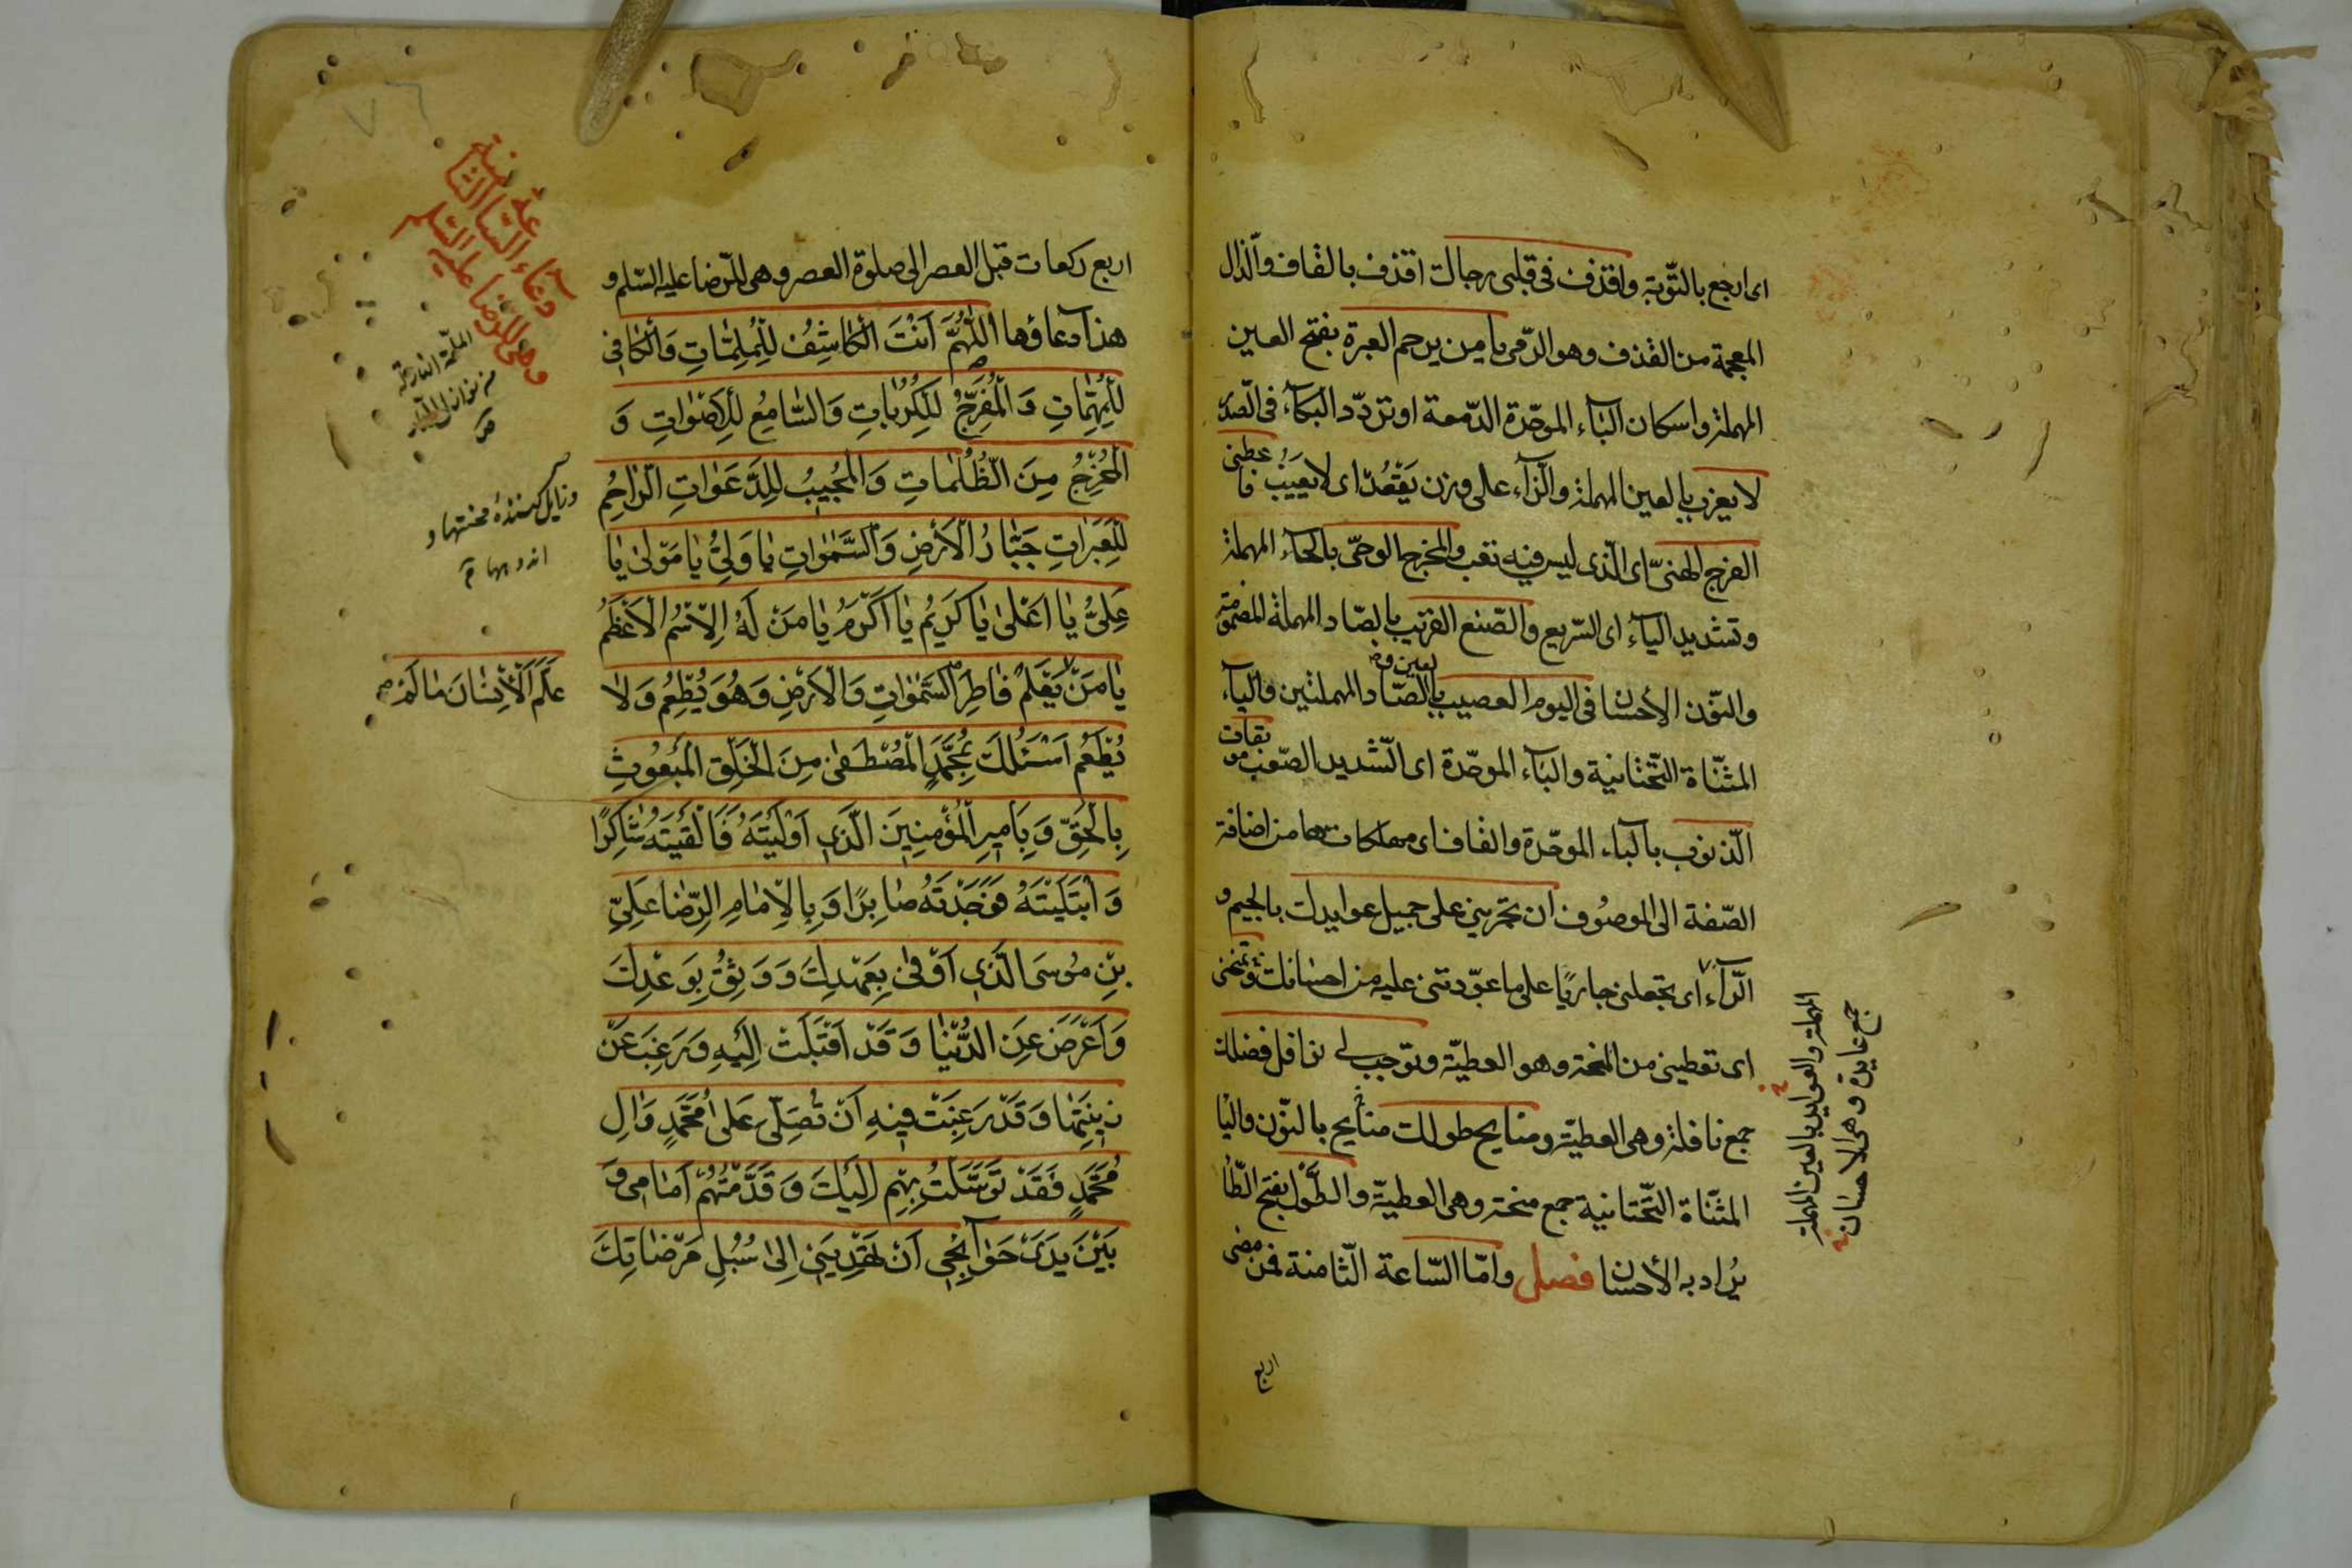 اى ارجع بالتّوبة واقذف فى قلبى رجاك اقذف بالقاف والذال
المعجمة من القذف وهو الرّمى يا من يرحم العبرة بفتح العين
المهملة واسكان الباء الموحّدة الدّمعة او تردّد البكآء فى الصّدر
لا يعزب بالعين المهملة والزّآء على وزن يَقْعُدُ اى لا يَغيبُ فاعطنى
الفرج الهنىّ اى الّذى ليس فيه تعب والمخرج الوحىّ بالحآء المهملة
وتشديد اليآء اى السّريع والصّنع القريب بالصّاد المهملة المضمومة
والنّون الأحسان فى اليوم العصيب بالعين والصّاد المهملتين واليآء
المثنّاة التّحتانية والبآء الموحّدة اى الشّديد الصّعب موبقات
الذّنوب بالباء الموحّدة والقاف اى مهلكاتها من اضافة
الصّفة الى الموصُوف ان تجرينى على جميل عوايدك بالجيم و
الرّآء اى تجعلنى جاريًا على ما عوّدتنى عليه من احسانك وتمنحنى
اى تعطينى من المنحة وهو العطيّة وتوجب لى نوافل فضلك
جمع نافلة وهى العطيّة ومنايح طولك منايح بالنّون واليا
المثنّاة التّحتانية جمع منحة وهى العطيّة والطَّول بفتح الطّا
يُراد به الأحسان فصل وامّا السّاعة الثّامنة فمن مضى
المهملة والعوايد بالعين المهملة
جمع عايدة وهى الاحسان
اربع
٧٦
دعاء السّاعة الثّامنة
وهى للرّضا عليه السّلم
اربع ركعات قبل العصر الى صلوة العصر وهى للرّضا عليه السّلم و
هذا دعاؤها اَللّٰهُمَّ اَنْتَ الْكاشِفُ لِلْمُلِمّاتِ وَالْكافى
لِلْمُهِمّاتِ وَ الْمُفَرِّجُ لِلْكُرُباتِ وَالسّامِعُ لِلْاَصْواتِ وَ
الْمُخْرِجُ مِنَ الظُّلُماتِ وَ الْمُجيبُ لِلدَّعَواتِ الرّاحِمُ
لِلْعَبَراتِ جَبّارُ الْاَرْضِ وَالسَّمٰواتِ يا وَلِىُّ يا مَوْلىٰ يا
عَلِىُّ يا اَعْلىٰ يا كَريمُ يا اَكْرَمُ يا مَنْ لَهُ الْاِسْمُ الْاَعْظَمُ
يا مَنْ عَلَّمَ الْاِنْسانَ مالَمْ يَعْلَمْ فاطِرَ السَّمٰواتِ وَالْاَرْضِ وَهُوَ يُطْعِمُ وَلا
يُطْعَمُ اَسْئَلُكَ بِمُحَمَّدٍ الْمُصْطَفىٰ مِنَ الْخَلْقِ الْمَبْعُوثِ
بِالْحَقِّ وَ بِاَميرِ الْمُؤْمِنينَ الَّذى اَوْلَيْتَهُ فَاَلْقَيْتَهُ شاكِرًا
وَ ابْتَلَيْتَهُ فَوَجَدْتَهُ صابِرًا وَ بِالْاِمامِ الرِّضا عَلِىِّ
بْنِ مُوسَى الَّذى اَوْفىٰ بِعَهْدِكَ وَ وَثِقَ بِوَعْدِكَ
وَ اَعْرَضَ عَنِ الدُّنْيا وَ قَدْ اَقْبَلَتْ اِلَيْهِ وَ رَغِبَ عَنْ
زينَتِها وَ قَدْ رَغِبَتْ فيهِ اَنْ تُصَلِّىَ عَلىٰ مُحَمَّدٍ وَ الِ
مُحَمَّدٍ فَقَدْ تَوَسَّلْتُ بِهِمْ اِلَيْكَ وَ قَدَّمْتُهُمْ اَمامى وَ
بَيْنَ يَدَىْ حَوآئِجى اَنْ تَهْدِيَنى اِلىٰ سُبُلِ مَرْضاتِكَ
الملمّة النازلة
من نوازل
وزايل كننده محنتها و
اندوهها